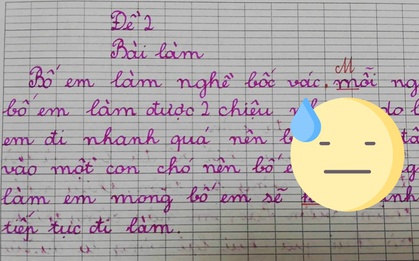 Đề 2
Bài làm
Bố em làm nghề bốc vác. mỗi M
bố em làm được 2 chiêu do
em đi nhanh quá nên
vào một con chó nên bố
làm em mong bố em sẽ
tiếp tục đi làm.